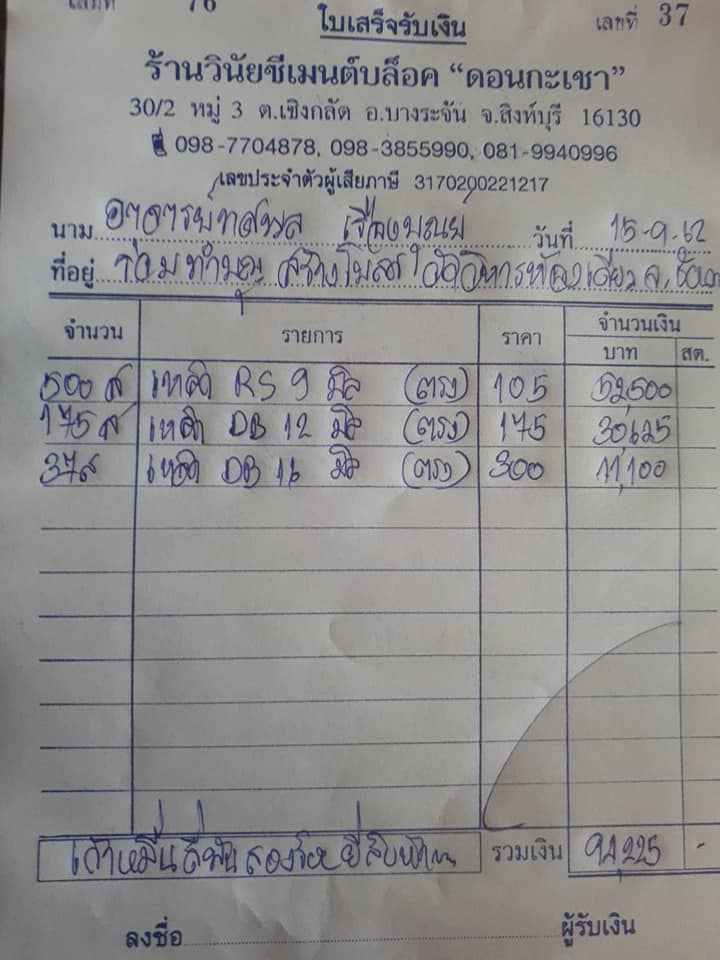 เล่มที่ 76 เลขที่ 37
ใบเสร็จรับเงิน
ร้านวินัยซีเมนต์บล็อค “ดอนกะเชา”
30/2 หมู่ 3 ต.เชิงกลัด อ.บางระจัน จ.สิงห์บุรี 16130
098-7704878, 098-3855990, 081-9940996
เลขประจำตัวผู้เสียภาษี 3170200221217
นาม อาจารย์ทศพล วันที่ 15-9-62
ที่อยู่ ร่วมทำบุญ สร้างโบสถ์ วัดวิหารห้องเดียว จ.
จำนวน รายการ ราคา จำนวนเงิน
บาท สต.
500 ส เหล็ก RS 9 มิล (ตรง) 105 52,500
175 ส เหล็ก DB 12 มิล (ตรง) 175 30,625
37 ส เหล็ก DB 16 มิล (ตรง) 300 11,100
เก้าหมื่นสี่พันสองร้อยยี่สิบห้า รวมเงิน 94,225 -
ลงชื่อ ผู้รับเงิน